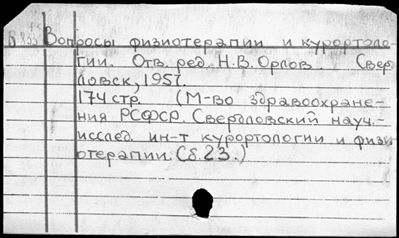 Вопросы физиотерапии и курортоло-
гии. Отв. ред. Н.В. Орлов. Сверд
ловск, 1957.
174 стр. (М-во здравоохране-
ния РСФСР. Свердловский науч.-
исслед. ин-т курортологии и физи
отерапии. (б.23.)